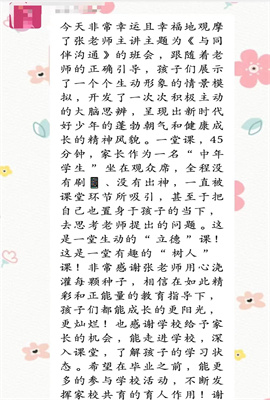 今天非常幸运且幸福地观摩
了张老师主讲主题为《与同
伴沟通》的班会，跟随着老
师的正确引导，孩子们展示
了一个个生动形象的情景模
拟，开发了一次次积极主动
的大脑思辨，呈现出新时代
好少年的蓬勃朝气和健康成
长的精神风貌。一堂课，45
分钟，家长作为一名“中年
学生”坐在观众席，全程没
有刷、没有出神，一直被
课堂环节所吸引，甚至于把
自己也置身于孩子的当下，
去思考老师提出的问题。这
是一堂生动的“立德”课！
这是一堂有趣的“树人”
课！非常感谢张老师用心浇
灌每颗种子，相信在如此精
彩和正能量的教育指导下，
孩子们都能成长的更阳光，
更灿烂！也感谢学校给予家
长的机会，能走进学校，深
入课堂，了解孩子的学习状
态。希望在毕业之前，能更
多的参与学校活动，不断发
挥家校共育的育人作用！谢